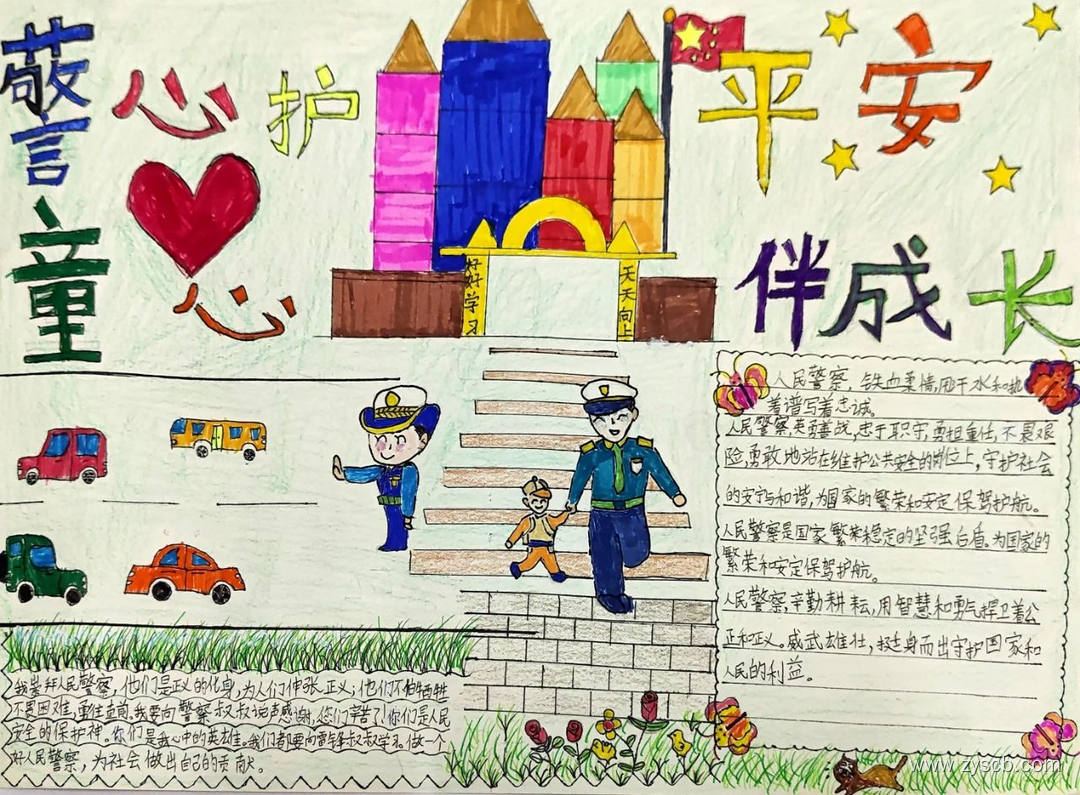 警心护童心
平安伴成长
好好学习
天天向上
人民警察，铁血柔情，用汗水和执
着谱写着忠诚。
人民警察，英勇善战，忠于职守，勇担重任，不畏艰
险，勇敢地站在维护公共安全的岗位上，守护社会
的安宁与和谐，为国家的繁荣和安定保驾护航。
人民警察是国家繁荣稳定的坚强后盾。为国家的
繁荣和安定保驾护航。
人民警察，辛勤耕耘，用智慧和勇气捍卫着公
正和正义。威武雄壮，挺身而出守护国家和
人民的利益。
我崇拜人民警察，他们是正义的化身，为人们伸张正义；他们不怕牺牲
不畏困难，勇往直前。我要向警察叔叔说声感谢，您们辛苦了！你们是人民
安全的保护神。你们是我心中的英雄。我们都要向雷锋叔叔学习。做一个
好人民警察，为社会做出自己的贡献。
www.zyscb.com